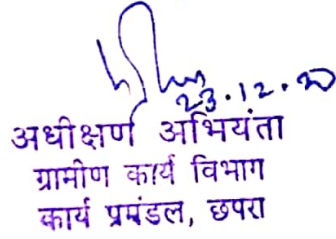 23.12.20
अधीक्षण अभियंता
ग्रामीण कार्य विभाग
कार्य प्रमंडल, छपरा